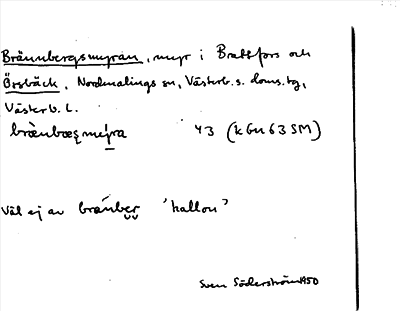 Brännbergsmyran, myr i Brattfors och
Örsbäck, Nordmalings sn, Västerb. s. doms.bg,
Västerb. l.
brænbæʂmýra 43 (k Gu 63 SM)
Väl ej av brænber 'hallon'
Sven Söderström 1950